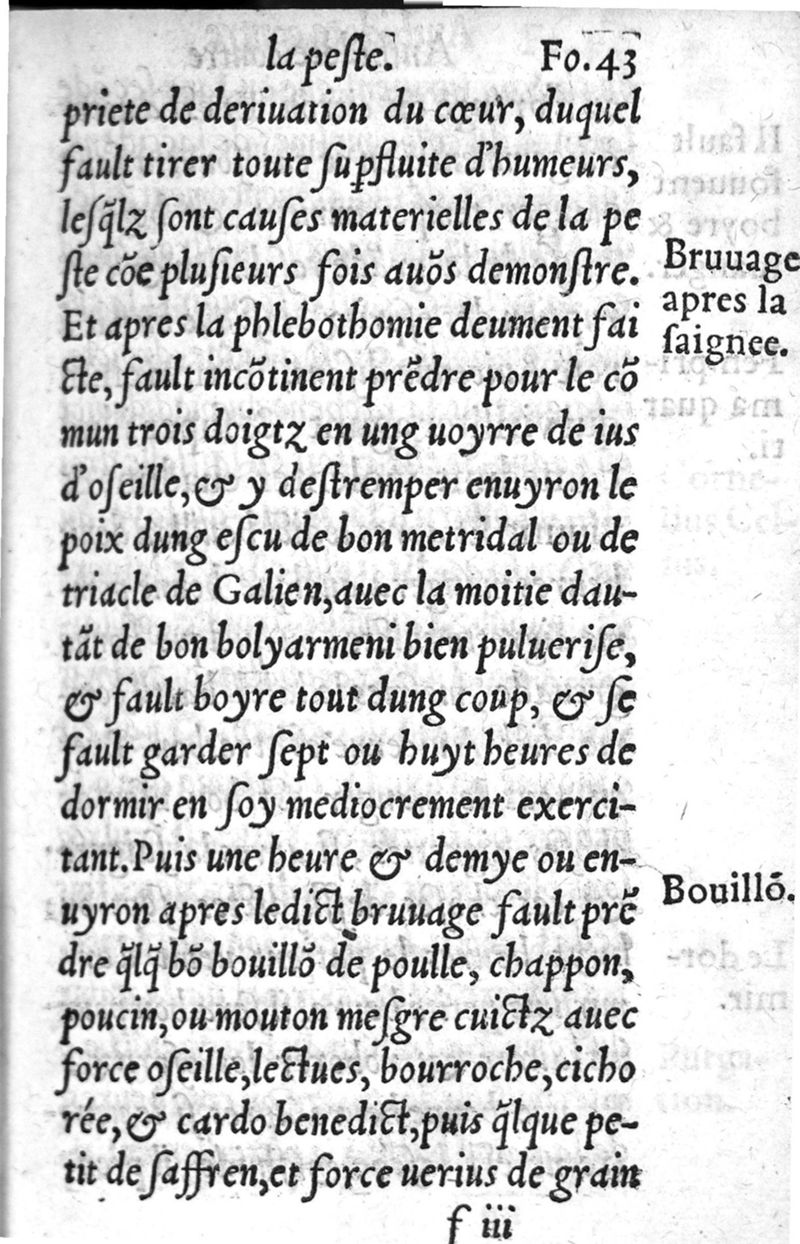 la peſte. Fo.43
priete de deriuation du cœur, duquel
fault tirer toute ſuꝑfluite d'humeurs,
leſq̃lz ſont cauſes materielles de la pe
ſte cõe pluſieurs fois auõs demonſtre.
Et apres la phlebothomie deument fai
cte, fault incõtinent prẽdre pour le cõ
mun trois doigtz en ung uoyrre de ius
d'oſeille, & y deſtremper enuyron le
poix dung eſcu de bon metridal ou de
triacle de Galien, auec la moitie dau-
tãt de bon bolyarmeni bien pulueriſe,
& fault boyre tout dung coup, & ſe
fault garder ſept ou huyt heures de
dormir en ſoy mediocrement exerci-
tant. Puis une heure & demye ou en-
uyron apres ledict bruuage fault prẽ
dre q̃lq̃ bõ bouillõ de poulle, chappon,
poucin, ou mouton meſgre cuictz auec
force oſeille, lectues, bourroche, cicho
rée, & cardo benedict, puis q̃lque pe-
tit de ſaffren, et force uerius de grain
f iii
Bruuage
apres la
ſaignee.
Bouillõ.